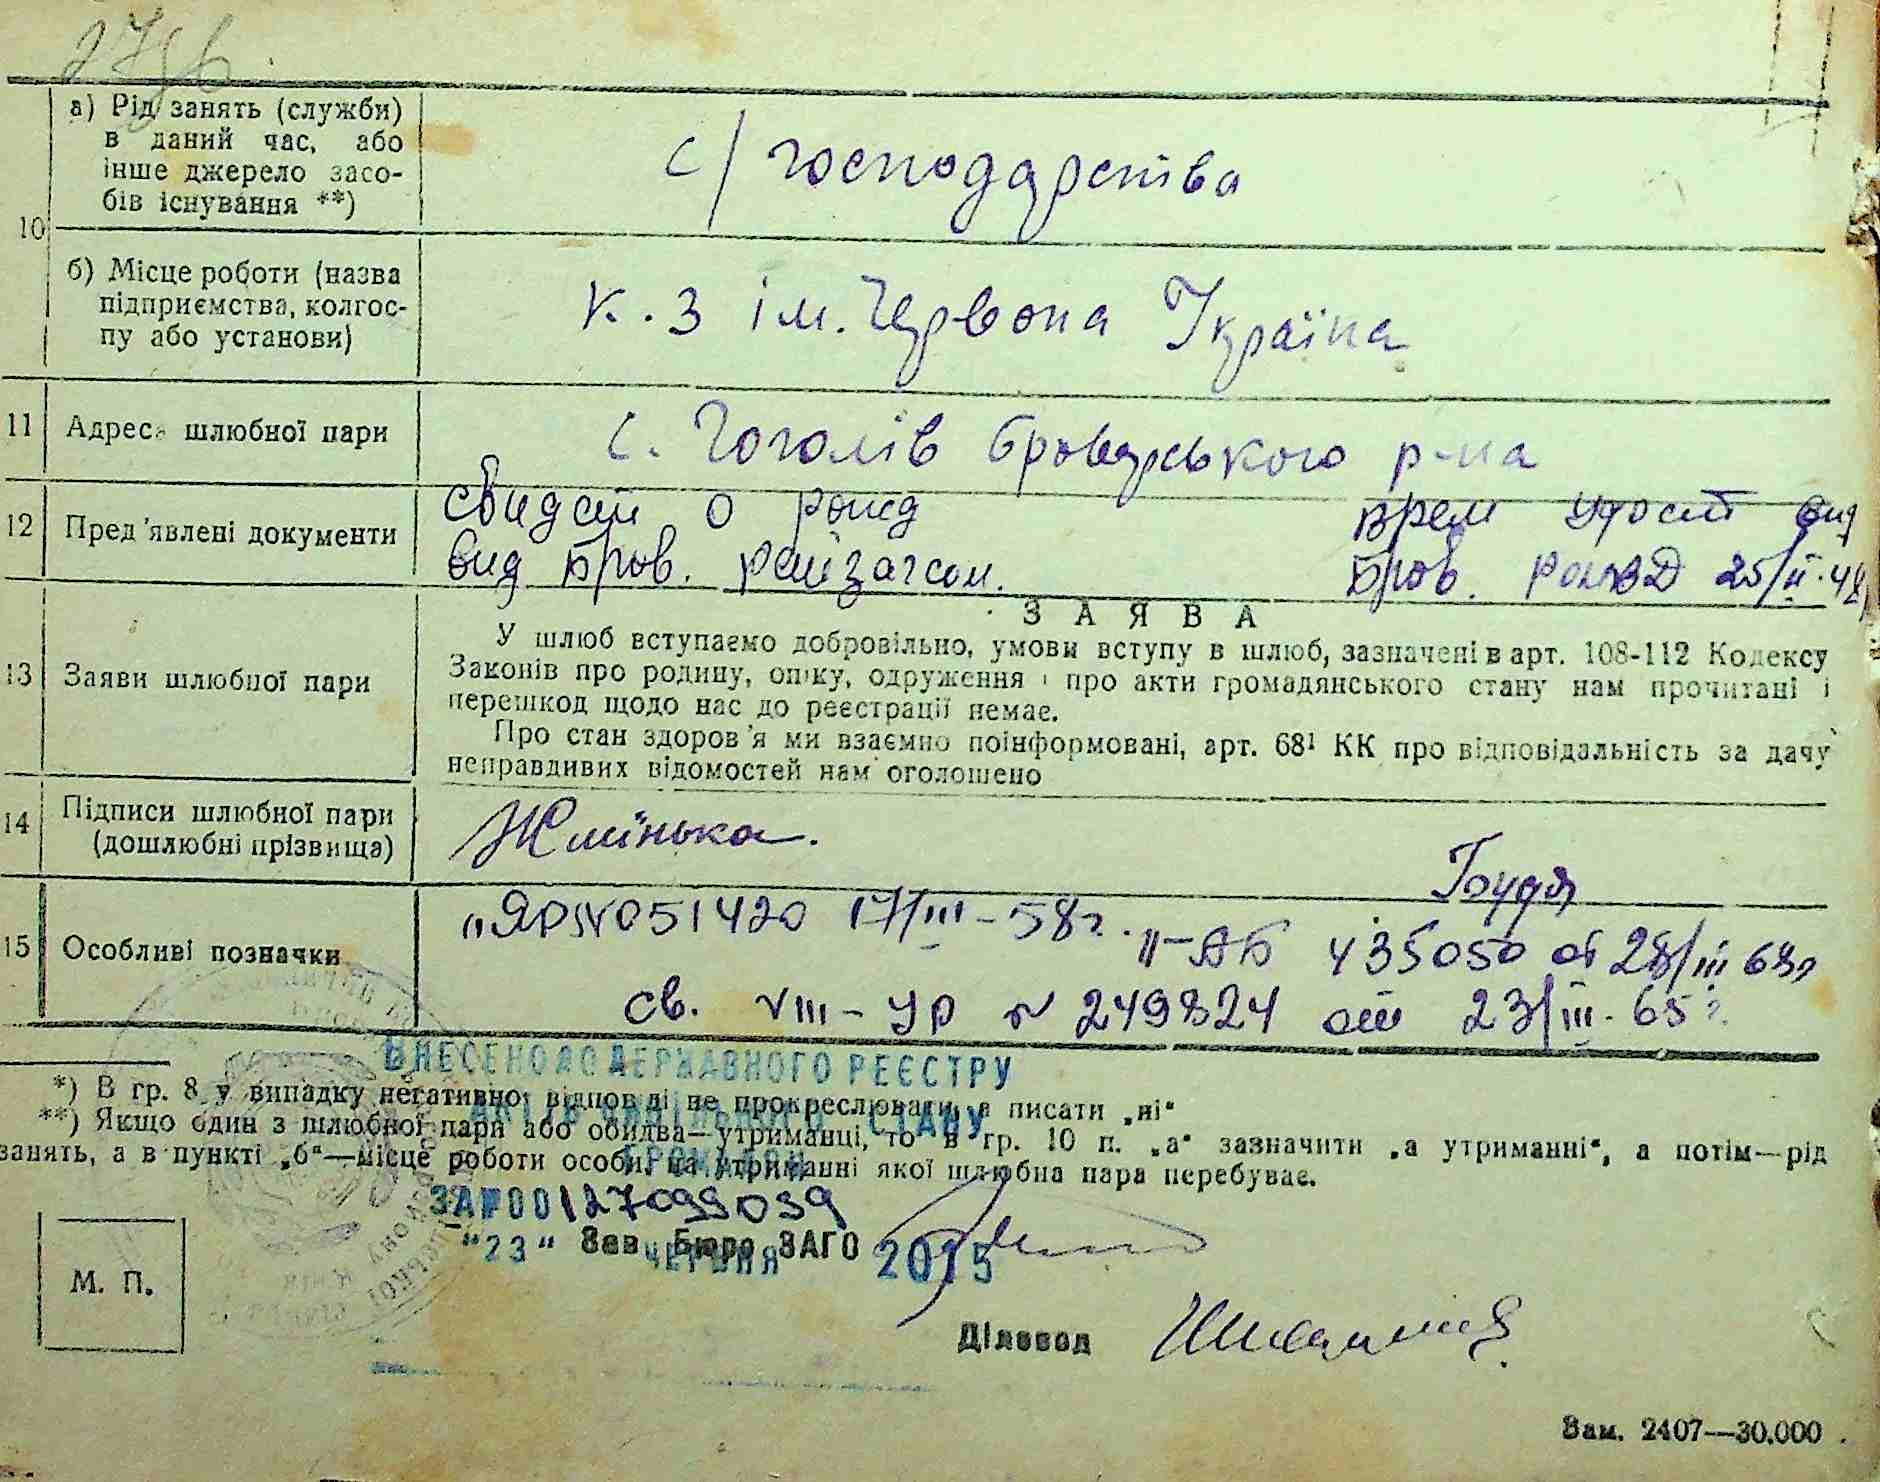 а) Рід занять (служби)
в даний час, або
інше джерело засо-
бів існування **)
с/господарства
10
б) Місце роботи (назва
підприємства, колгос-
пу або установи)
к.з ім. Червона Україна
11 Адреса шлюбної пари
с. Гоголів Броварського р-на
12 Пред'явлені документи
свидет о рожд
врем удост вид
вид Бров. райзагсом.
Бров. 25/II-48
ЗАЯВА
13 Заяви шлюбної пари
У шлюб вступаємо добровільно, умови вступу в шлюб, зазначені в арт. 108-112 Кодексу
Законів про родину, опіку, одруження і про акти громадянського стану нам прочитані і
перешкод щодо нас до реєстрації немає.
Про стан здоров'я ми взаємно поінформовані, арт. 68¹ КК про відповідальність за дачу
неправдивих відомостей нам оголошено
14 Підписи шлюбної пари
(дошлюбні прізвища)
15 Особливі позначки
ЯР N051420 17/III-58г.
II-АБ 435050 от 28/III 68г
св. VIII-УР N 249824 от 23/III-65г.
ВНЕСЕНО ДО ДЕРЖАВНОГО РЕЄСТРУ
*) В гр. 8 у випадку негативної відповіді не прокреслювати, а писати „ні“
АКТІВ ЦИВІЛЬНОГО СТАНУ
**) Якщо один з шлюбної пари або обидва—утриманці, то в гр. 10 п. „а“ зазначити „а утриманні“, а потім—рід
ГРОМАДЯН
занять, а в пункті „б“—місце роботи особи, на утриманні якої шлюбна пара перебуває.
ЗА №00127099039
"23" ЧЕРВНЯ 2015
Зав. Бюро ЗАГС
М. П.
Діловод
Зам. 2407—30.000